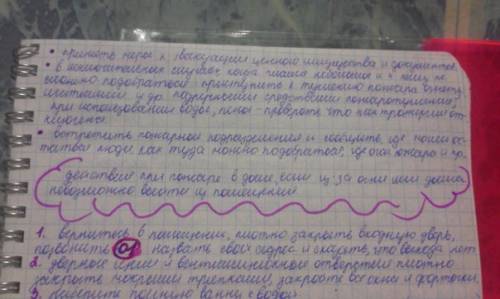 • принять меры к эвакуации ценного имущества и документов
• в исключительных случаях когда пламя небольшое и к нему не
сложно подобраться приступить к тушению пожара
и др. подручными средствами пожаротушения,
при использовании воды, пены - проверить что эл.
ключены.
• встретить пожарное подразделение и сообщить, где нахо
люди, как туда можно подобраться, где очаг пожара и
действия при пожаре в доме, если из-за огня или дыма
невозможно выйти из помещения
1. вернитесь в помещение, плотно закрыть входную дверь,
позвонить 01 назвать свой адрес и сказать, что выхода нет
2. дверной и вентиляционной отверстия плотно
закрыть мокрыми тряпками, закройте все окна и форточки
3. полную ванну с водой